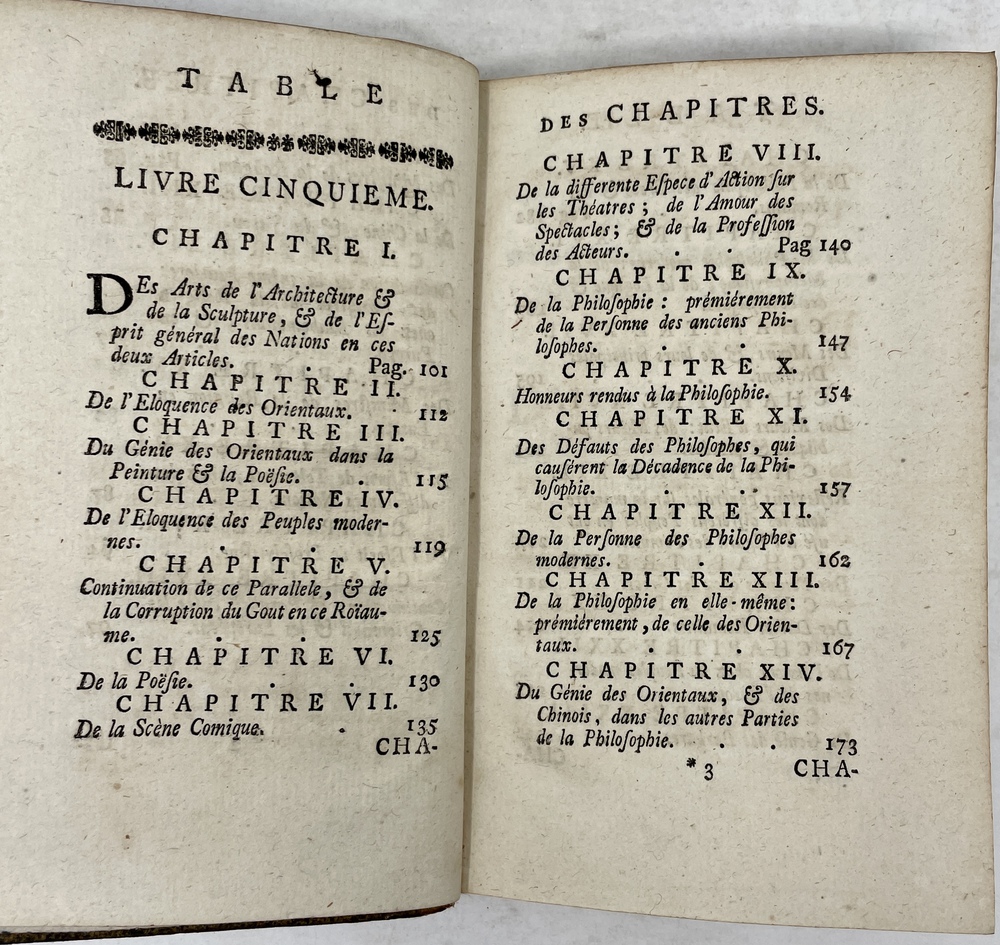 TABLE
LIVRE CINQUIEME.
CHAPITRE I.
DEs Arts de l'Architecture &
de la Sculpture, & de l'Eſ-
prit général des Nations en ces
deux Articles. . Pag. 101
CHAPITRE II.
De l'Eloquence des Orientaux. . 112
CHAPITRE III.
Du Génie des Orientaux dans la
Peinture & la Poëſie. . 115
CHAPITRE IV.
De l'Eloquence des Peuples moder-
nes. . . 119
CHAPITRE V.
Continuation de ce Parallele, & de
la Corruption du Gout en ce Roïau-
me. . . 125
CHAPITRE VI.
De la Poëſie. . . 130
CHAPITRE VII.
De la Scène Comique. . 135
CHA-
DES CHAPITRES.
CHAPITRE VIII.
De la differente Eſpece d'Action ſur
les Théatres; de l'Amour des
Spectacles; & de la Profeſſion
des Acteurs. . . Pag 140
CHAPITRE IX.
De la Philoſophie : prémiérement
de la Perſonne des anciens Phi-
loſophes. . . 147
CHAPITRE X.
Honneurs rendus à la Philoſophie. 154
CHAPITRE XI.
Des Défauts des Philoſophes, qui
cauſérent la Décadence de la Phi-
loſophie. . . 157
CHAPITRE XII.
De la Perſonne des Philoſophes
modernes. . 162
CHAPITRE XIII.
De la Philoſophie en elle-même:
prémiérement, de celle des Orien-
taux. . . 167
CHAPITRE XIV.
Du Génie des Orientaux, & des
Chinois, dans les autres Parties
de la Philoſophie. . . 173
*3 CHA-